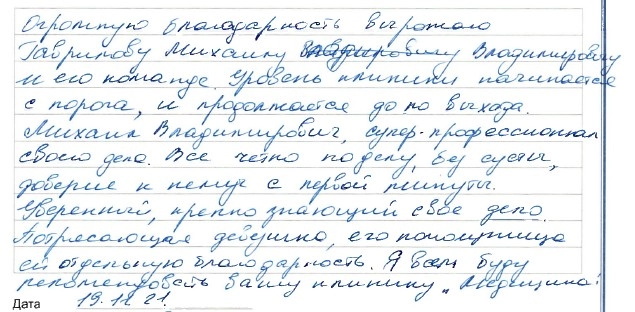 Огромную благодарность выражаю
Гаврилову Михаилу Владимировичу
и его команде. Уровень клиники начинается
с порога, и продолжается до по выхода.
Михаил Владимирович, супер-профессионал
своего дела. Все четко по делу, без суеты,
доверие к нему с первой минуты.
Уверенный, крепко знающий свое дело.
Потрясающая девушка, его помощница
ей отдельную благодарность. Я всем буду
рекомендовать вашу клинику „Медицина"
Дата 19.12.21.